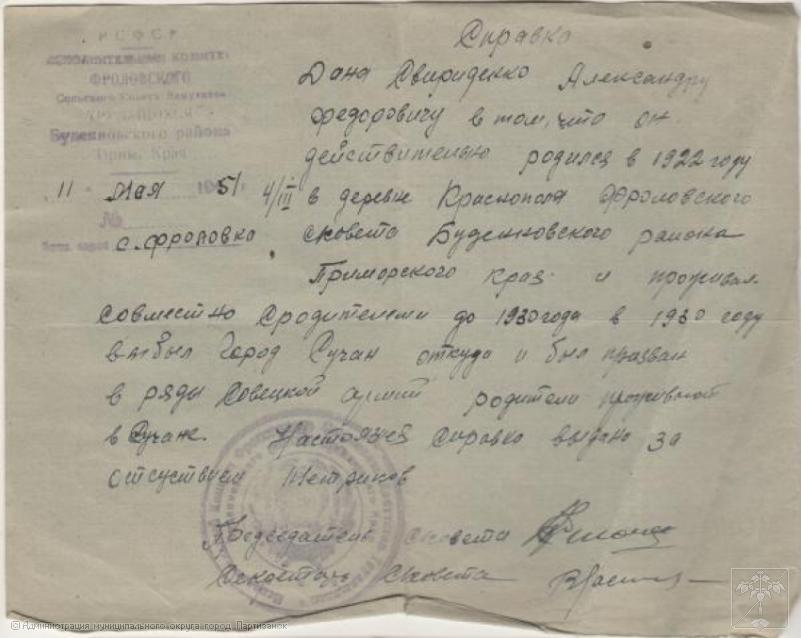 Р С Ф С Р
ИСПОЛНИТЕЛЬНЫЙ КОМИТЕТ
ФРОЛОВСКОГО
Сельского Совета Депутатов
ТРУДЯЩИХСЯ
Буденновского района
Прим. Края
11 мая 1951 г.
№
с. Фроловка
Справка
Дана Свириденко Александру
Федоровичу в том, что он
действительно родился в 1922 году
4/III в деревне Краснополя Фроловского
с/совета Буденновского района
Приморского края и проживал
совместно с родителеми до 1930 года в 1930 году
выбыл Город Сучан откуда и был призван
в ряды Совецкой армии родители проживают
в Сучане. Настоящея справка выдана за
отсуствием Метриков
Председатель с/совета
Секретарь с/совета
© Администрация муниципального округа город Партизанск